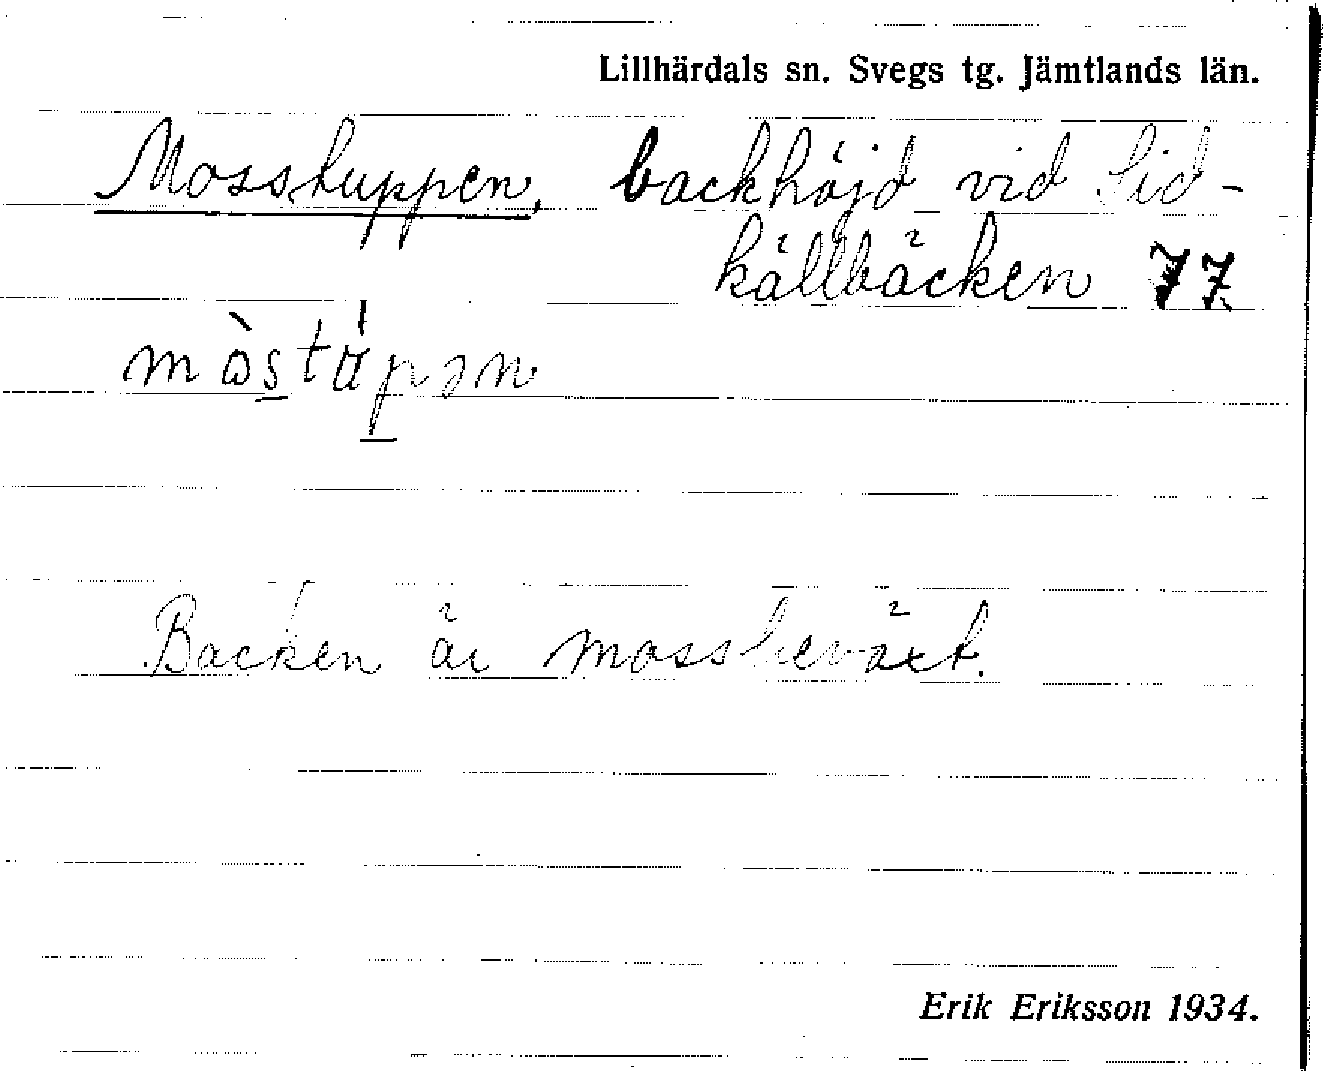 Lillhärdals sn. Svegs tg. Jämtlands län.
Mosstuppen, backhöjd vid Lid-
källbäcken 77
Backen är mossbeväxt.
Erik Eriksson 1934.